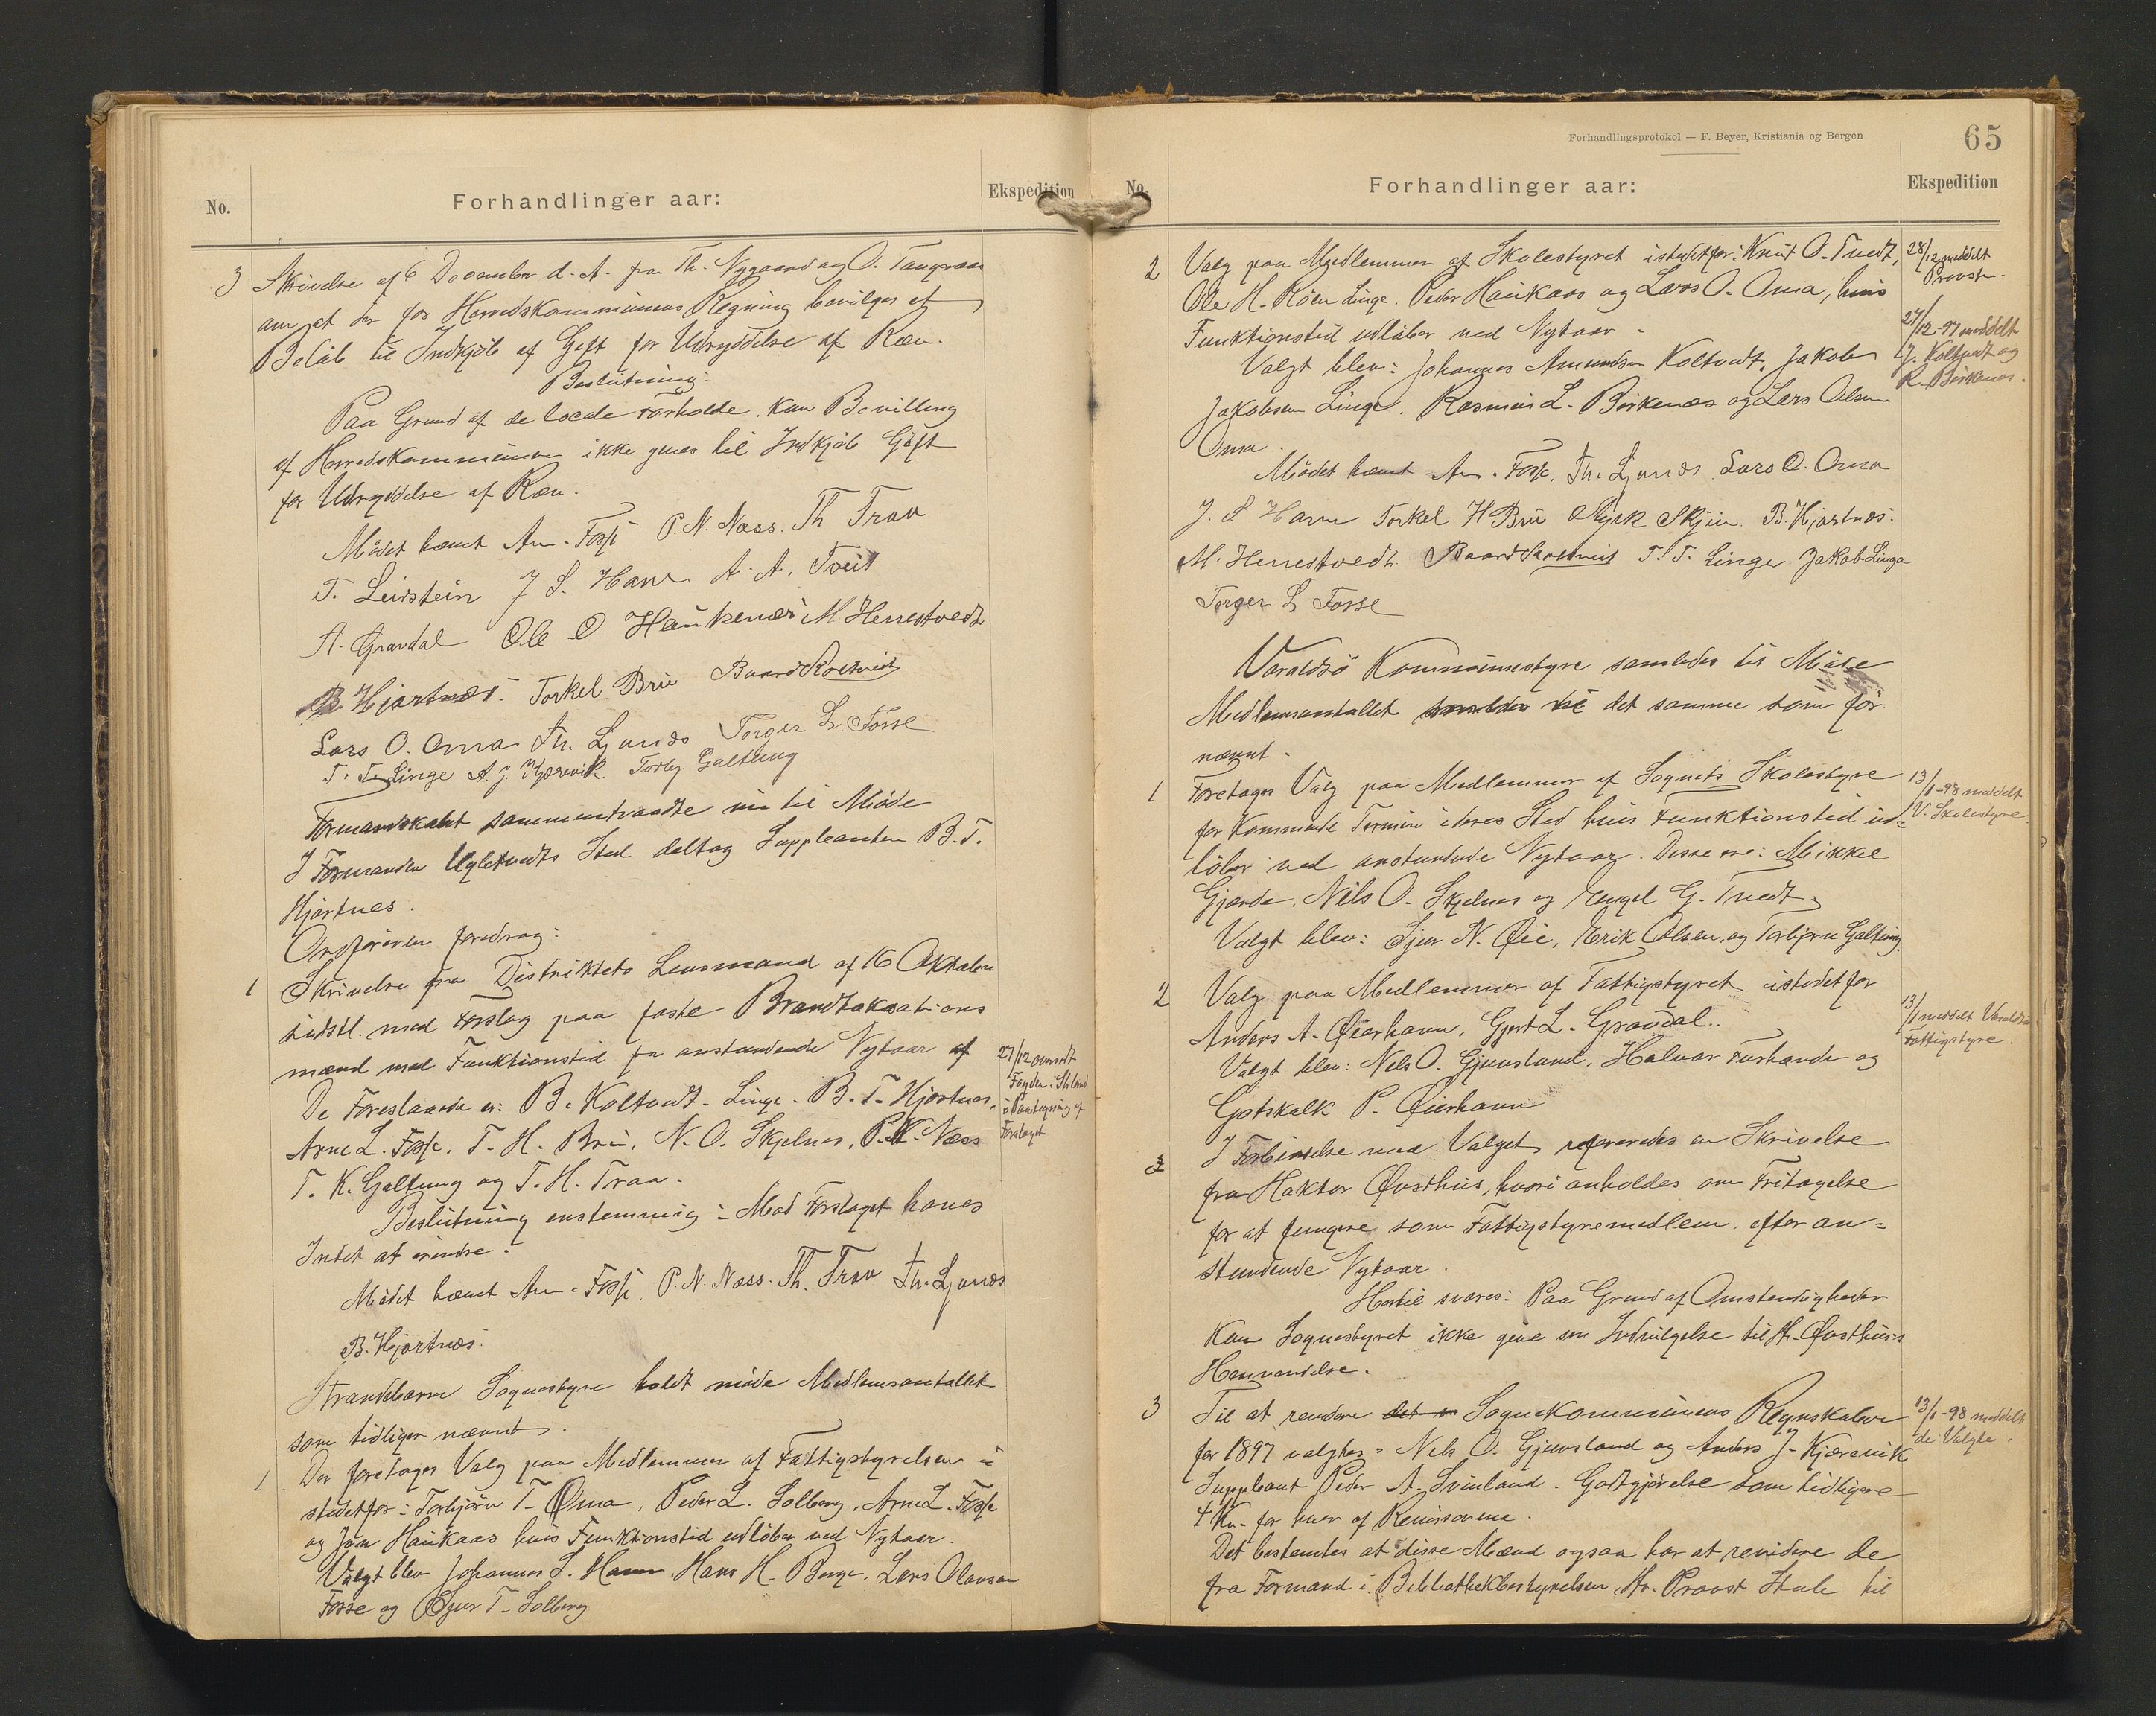 No.
Forhandlinger aar:
Ekspedition
3 Skrivelse af 6 December d. A. fra Th. Nygaard og O. Tangeraas
om at der for Herredskommunens Regning bevilges et
Beløb til Indkjøb af Gift for Udryddelse af Ræv.
Beslutning:
Paa Grund af de locale Forholde kan Bevilling
af Herredskommunen ikke gives til Indkjøb Gift
for Udryddelse af Ræv.
Mødet hævet Arn. Fosse P. N. Næss. Th Traa
T. Leirstein J S. Have A. A. Tveit
A. Gravdal Ole O Haukenæs M. Herrestvedt
B. Hjartnæs. Torkel Bru Baard Rolstveit
Lars O. Oma Th. Ljonæs Torger L. Fosse
T. T. Linge A. J. Kjærevik. Torbj. Galtung
Formandskabet sammentraadte nu til Møde
I Formanden Ugletvedts Sted deltog Suppleanten B. T.
Hjartnes.
Ordføreren foredrog:
1 Skrivelse fra Distriktets Lensmand af 16 Oktober
sidstl. med Forslag paa faste Brandtaksations
mænd med Funktionstid fra anstundende Nytaar af
De Foreslaaede er: B. Koltvedt. Linge. B. T. Hjartnes,
Arne L. Fosse, T. H. Bru, N. O. Skjelnes, P. N. Næss
T. K. Galtung og T. H. Traa.
27/12 oversendt
Fogden i
i Paategning af
Forslaget
Beslutning enstemmig: Mod Forslaget haves
Intet at erindre.
Mødet hævet Arn. Fosse, P. N. Næss. Th. Traa Th. Ljonæs
B. Hjartnæs.
Strandebarm Sognestyre holdt møde Medlemsantallet
som tidliger nævnt.
1 Der foretages Valg paa Medlemmer af Fattigstyrelsen i
stedetfor: Torbjørn T. Oma, Peder L. Solberg, Arne L. Fosse
og Jon Haukaas hvis Funktionstid udløber ved Nytaar.
Valgt blev Johannes S. Haave, Hans H. Berge, Lars Olavsen
Fosse og Sjur T. Solberg
Forhandlingsprotokol — F. Beyer, Kristiania og Bergen
65
No.
Forhandlinger aar:
Ekspedition
2 Valg paa Medlemmer af Skolestyret istedetfor: Knut O. Tvedt,
Ole H. Røen Linge. Peder Haukaas og Lars O. Oma, hvis
Funktionstid udløber ved Nytaar.
28/12 meddelt
Provsten.
Valgt blev: Johannes Amundsen Koltvedt, Jakob
Jakobsen Linge. Rasmus L. Birkenæs og Lars Olsen
Oma.
27/12-97 meddelt
J. Koltvedt og
R. Birkenes.
Mødet hævet Arn. Fosse, Th. Ljonæs Lars O. Oma
J. S Haave Torkel H Bru Styrk Skjeie. B. Hjartnæs.
M. Herrestvedt. Baard Rolstveit T. T. Linge Jakob Linga
Torger L Fosse
Varaldsø Kommunestyre samledes til Møde
Medlemsantallet samledes til det samme som før
nævnt.
1 Foretages Valg paa Medlemmer af Sognets Skolestyre
for Kommende Termin i deres Sted hvis Funktionstid ud=
løber ved anstundende Nytaar. Disse ere: Mikkel
Gjerde, Nils O. Skjelnes og Engel G. Tvedt.
13/1-98 meddelt
V. Skolestyre
Valgt blev: Sjur N. Øie, Erik Olsen, og Torbjørn Galtung.
2 Valg paa Medlemmer af Fattigstyret istedetfor
Anders A. Øierhavn, Gjert L. Gravdal..
13/1 meddelt Varaldsø
Fattigstyre.
Valgt blev: Nels O. Gjuvsland, Halvor Furhaavde og
Gotskalk P. Øierhavn
I Forbindelse med Valget refereredes en Skrivelse
fra Haktor Øvsthus, hvori anholdes om Fritagelse
for at fungere som Fattigstyremedlem efter an=
stundende Nytaar.
Hertil svares: Paa Grund af Omstendigheder
Kan Sognestyret ikke give sin Indvilgelse til H. Øvsthus's
Henvendelse.
3 Til at revidere det Sognekommunens Regnskaber
for 1897 valgtes: Nels O. Gjuvsland og Anders J. Kjærevik
Suppleant Peder A. Svinland. Godtgjørelse som tidligere
4 Kr. for hver af Revisorene.
13/1-98 meddelt
de Valgte.
Det bestemtes at disse Mænd ogsaa har at revidere de
fra Formand i Bibliothekbestyrelsen, Hr. Provst til